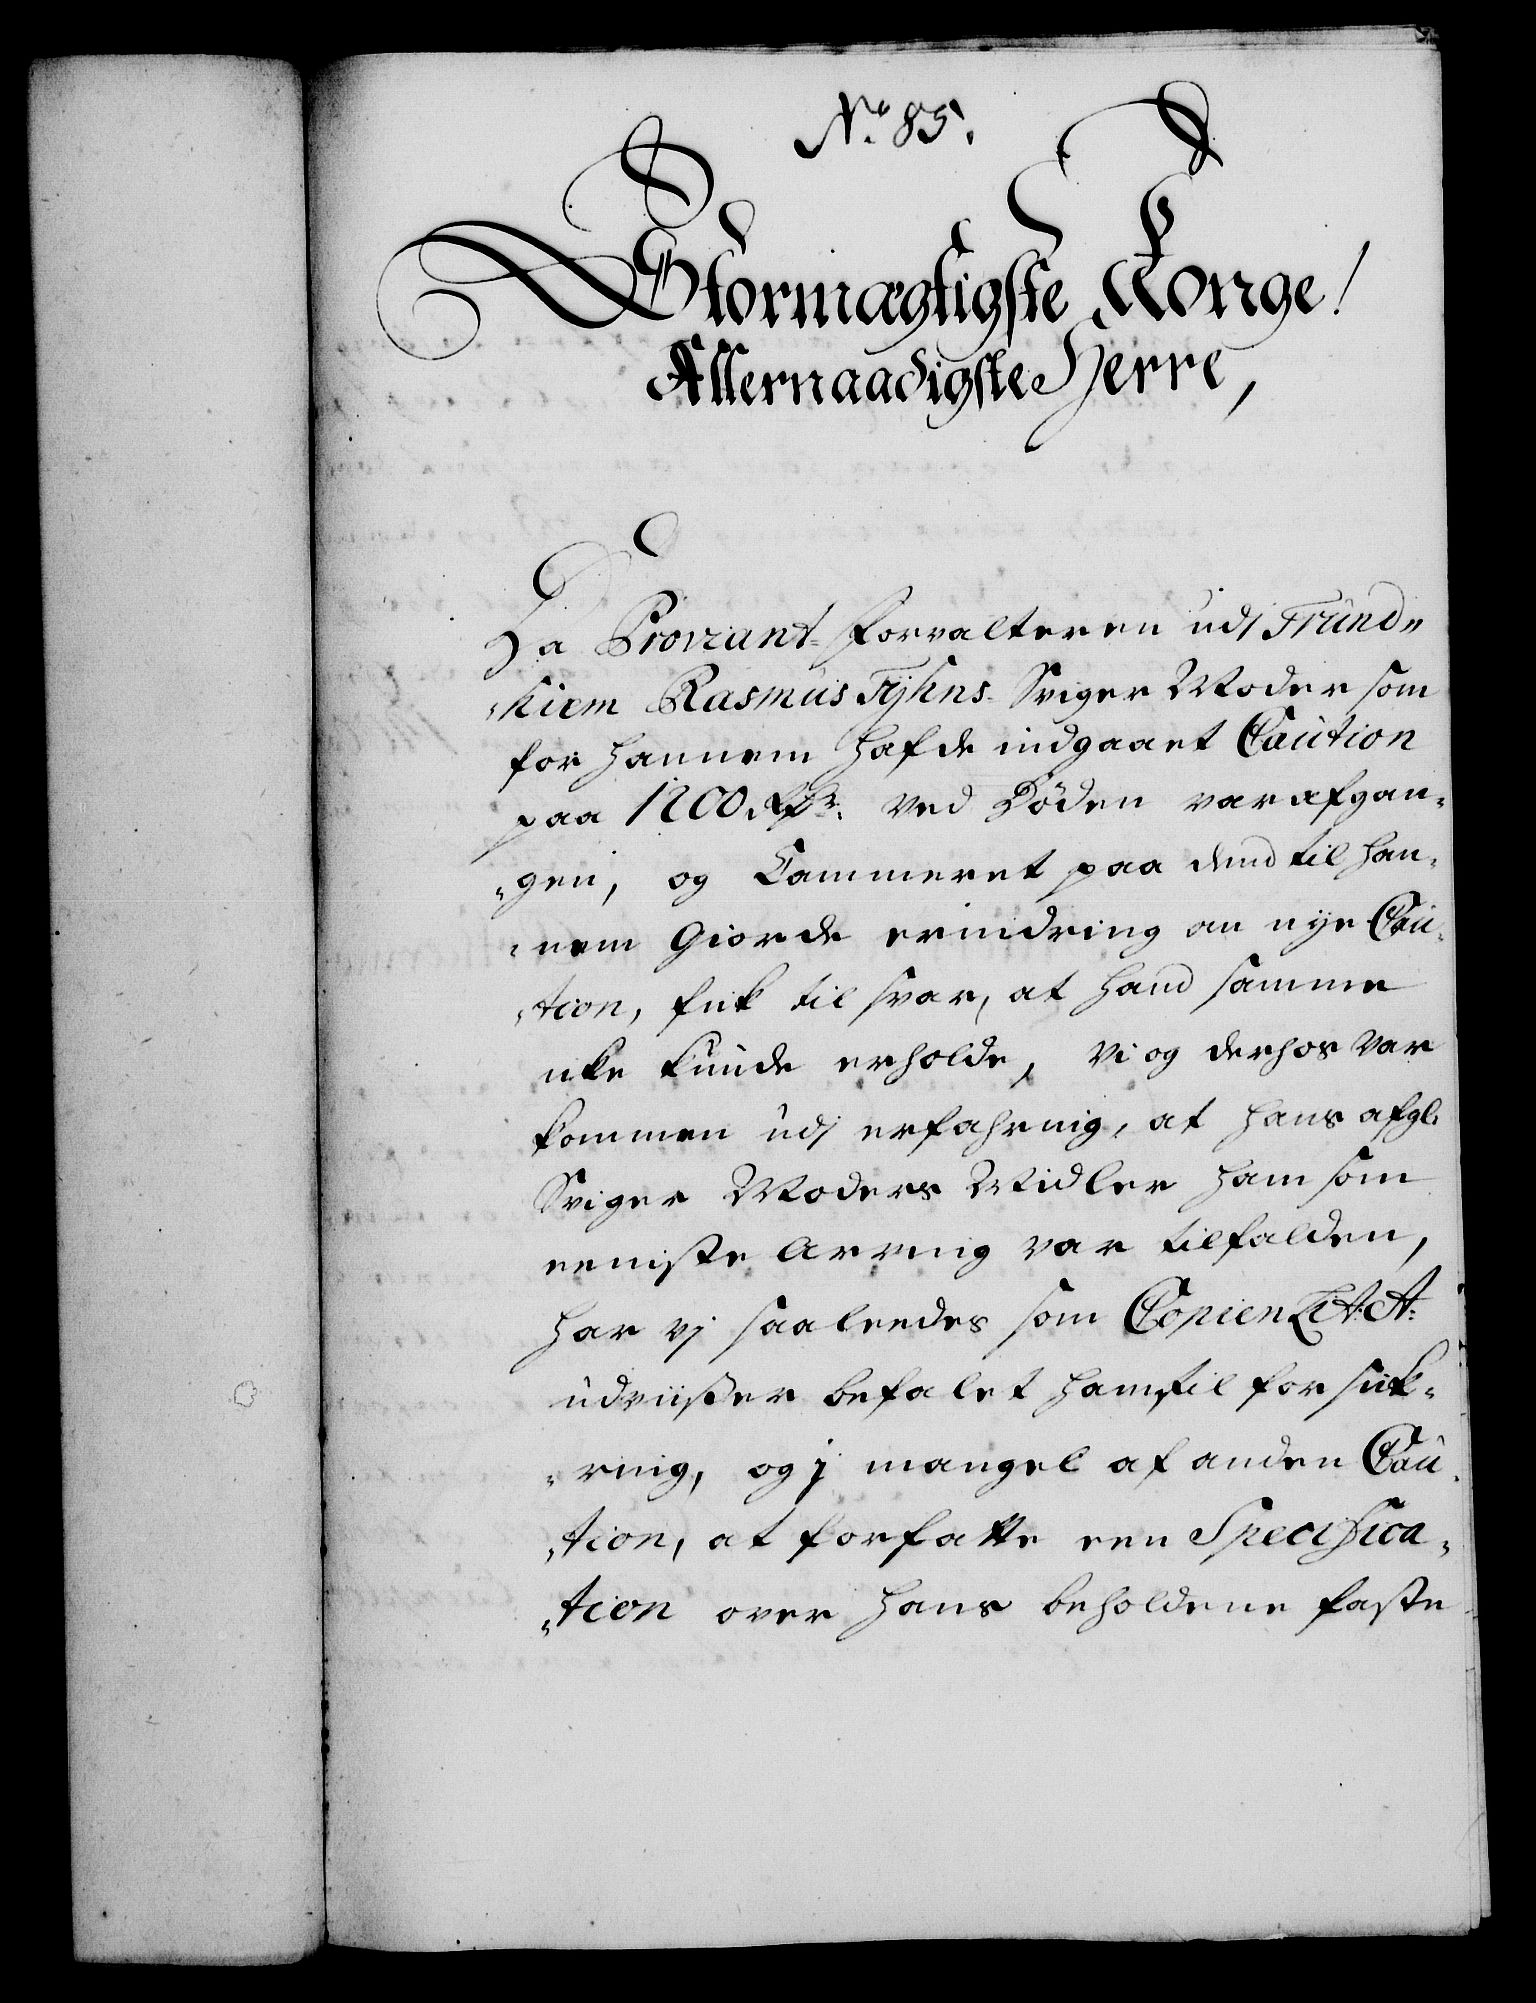 No. 85.
Stormægtigste Konge!
Allernaadigste Herre,
Da Proviant-forvalteren udj Trund„
„hiem Rasmus Fyhns Sviger Moder som
for hannem hafde indgaaet Caution
paa 1200 Rdr. ved Døden var afgan„
„gen, og Cammeret paa dend til han„
„nem Giorde erindring om nye Cau„
„tion, fik til svar, at hand samme
icke kunde erholde, vi og derhos var
kommen udj erfahring, at hans afgl.
Sviger Moders Midler ham som
eeniste Arving var tilfalden,
har vj saaleedes som Copien Lit: A:
udviiser befalet ham til forsik„
„ring, og j mangel af anden Cau„
„tion, at forfatte een Specifica„
„tion over hans beholdene faste